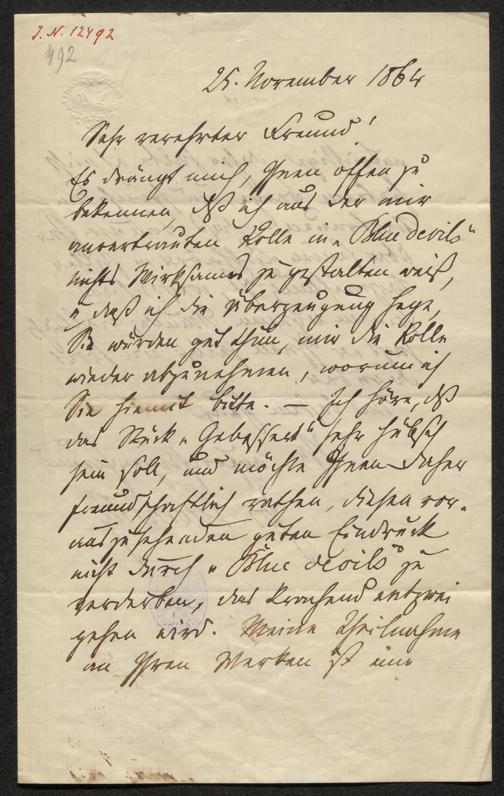 J. N. 12492
492
25. November 1864
Sehr verehrter Freund!
Es drängt mich, Ihnen offen zu
bekennen, daß ich aus der mir
anvertrauten Rolle in „Blue devils“
nichts Wirksames zu gestalten weiß,
u daß ich die Überzeugung hege,
Sie würden gut thun, mir die Rolle
wieder abzunehmen, worum ich
Sie hiemit bitte. — Ich höre, daß
das Stück „Gebessert“ sehr hübsch
sein soll, und möchte Ihnen daher
freundschaftlich rathen, diesen vor-
auszusehenden guten Eindruck
nicht durch „Blue devils“ zu
verderben, das krachend entzwei
gehen wird. Meine Theilnahme
an Ihren Werken ist eine